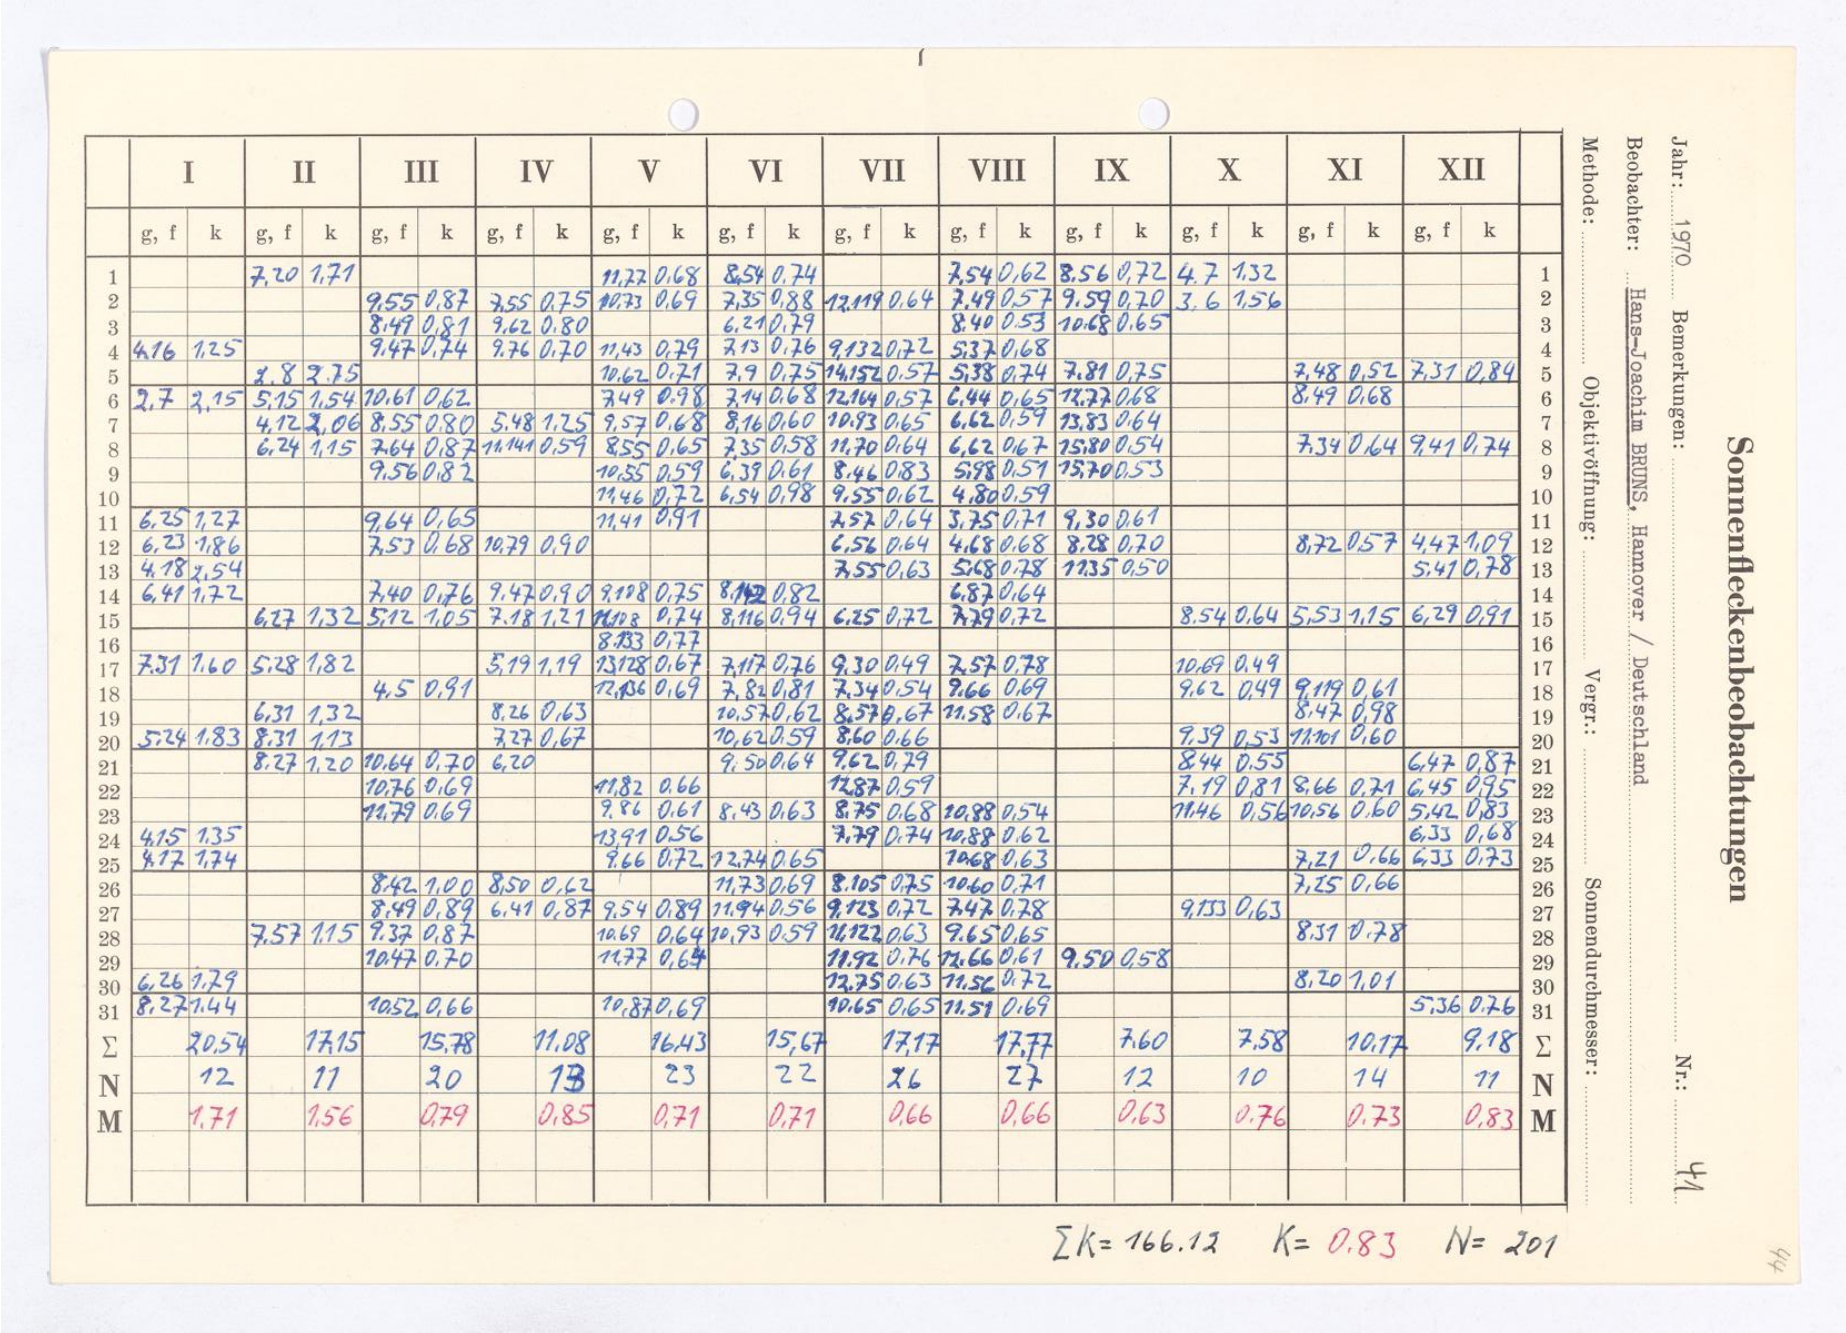 I II III IV V VI VII VIII IX X XI XII
g, f k g, f k g, f k g, f k g, f k g, f k g, f k g, f k g, f k g, f k g, f k g, f k
1 7,20 1,71 11,77 0,68 8,54 0,74 7,54 0,62 8.56 0,72 4.7 1,32 1
2 9,55 0,87 7,55 0,75 10,73 0,69 7,35 0,88 12,119 0,64 7,49 0,57 9.59 0,70 3,6 1,56 2
3 8,49 0,81 9,62 0.80 6,21 0,79 8.40 0.53 10.68 0,65 3
4 4,16 1,25 9.47 0,74 9.76 0,70 11,43 0,79 7,13 0,76 9,132 0,72 5,37 0,68 4
5 2.8 2.75 10.62 0,71 7,9 0,75 14,152 0.57 5,38 0,74 7.81 0,75 7,48 0,52 7,31 0,84 5
6 2,7 2,15 5,15 1,54 10,61 0,62 7,49 0,98 7,14 0,68 12,164 0,57 6.44 0,65 12,77 0,68 8,49 0,68 6
7 4,12 2,06 8,55 0,80 5.48 1,25 9,57 0,68 8,16 0,60 10.93 0,65 6,62 0,59 13,83 0,64 7
8 6,24 1,15 7,64 0,87 11,141 0,59 8,55 0,65 7,35 0,58 11,70 0,64 6,62 0,67 15,80 0,54 7,34 0,64 9,41 0,74 8
9 9.56 0,82 10,55 0,59 6,39 0,61 8.46 0,83 5,98 0,51 15,70 0,53 9
10 11,46 0,72 6,54 0,98 9.55 0,62 4,80 0,59 10
11 6,25 1,27 9,64 0,65 11,41 0,91 7,57 0,64 3,75 0,71 9,30 0,61 11
12 6,23 1,86 7,53 0,68 10,79 0,90 6,56 0,64 4.68 0,68 8.28 0,70 8,72 0,57 4,47 1,09 12
13 4.18 2,54 7,55 0,63 5,68 0,78 11.35 0,50 5.41 0,78 13
14 6,41 1,72 7,40 0,76 9.47 0,90 9.108 0,75 8,142 0,82 6.87 0,64 14
15 6,27 1,32 5,12 1,05 7.18 1,21 11,108 0,74 8,116 0,94 6,25 0,72 7,79 0,72 8.54 0,64 5,53 1,15 6,29 0,91 15
16 8.133 0,77 16
17 7.31 1.60 5,28 1,82 5,19 1,19 13,128 0,67 7,117 0,76 9.30 0,49 7,57 0,78 10,69 0,49 17
18 4,5 0,91 12,136 0,69 7,82 0,81 7,34 0,54 9.66 0,69 9,62 0,49 9,119 0,61 18
19 6,31 1,32 8.26 0,63 10,57 0,62 8,57 0,67 11,58 0,67 8,47 0,98 19
20 5,24 1,83 8,31 1,13 7,27 0,67 10,62 0,59 8,60 0,66 9,39 0,53 11,101 0,60 20
21 8,27 1,20 10,64 0,70 6,20 9,50 0,64 9,62 0,79 8,44 0,55 6,47 0,87 21
22 10,76 0,69 11,82 0,66 12,87 0,59 7,19 0,81 8,66 0,71 6,45 0,95 22
23 11,79 0,69 9,86 0,61 8,43 0,63 8,75 0,68 10,88 0,54 11,46 0,56 10,56 0,60 5,42 0,83 23
24 4,15 1,35 13,91 0,56 7,79 0,74 10,88 0,62 6,33 0,68 24
25 4,17 1,74 9,66 0,72 12,74 0,65 10,68 0,63 7,21 0,66 6,33 0,73 25
26 8,42 1,00 8,50 0,62 11,73 0,69 8.105 0,75 10.60 0,71 7,25 0,66 26
27 8,49 0,89 6,41 0,87 9,54 0,89 11,94 0,56 9,123 0,72 7,47 0,78 9,133 0,63 27
28 7,57 1,15 9.37 0,87 10.69 0,64 10,93 0,59 11,122 0,63 9.65 0,65 8,31 0,78 28
29 10.47 0,70 11,77 0,64 11,92 0,76 12,66 0,61 9.50 0,58 29
30 6,26 1,79 12,75 0,63 11,56 0,72 8,20 1,01 30
31 8,27 1.44 10,52 0,66 10,87 0,69 10,65 0,65 11.51 0,69 5,36 0,76 31
Σ 20,54 17,15 15,78 11,08 16,43 15,67 17,17 17,77 7,60 7,58 10,17 9,18 Σ
N 12 11 20 13 23 22 26 27 12 10 14 11 N
M 1,71 1,56 0,79 0,85 0,71 0,71 0,66 0,66 0,63 0.76 0.73 0,83 M
Σ K = 166.12 K = 0.83 N = 201
Sonnenfleckenbeobachtungen
Jahr: 1970 Bemerkungen: Nr.: 41
Beobachter: Hans-Joachim BRUNS, Hannover / Deutschland
Methode: Objektivöffnung: Vergr.: Sonnendurchmesser:
44